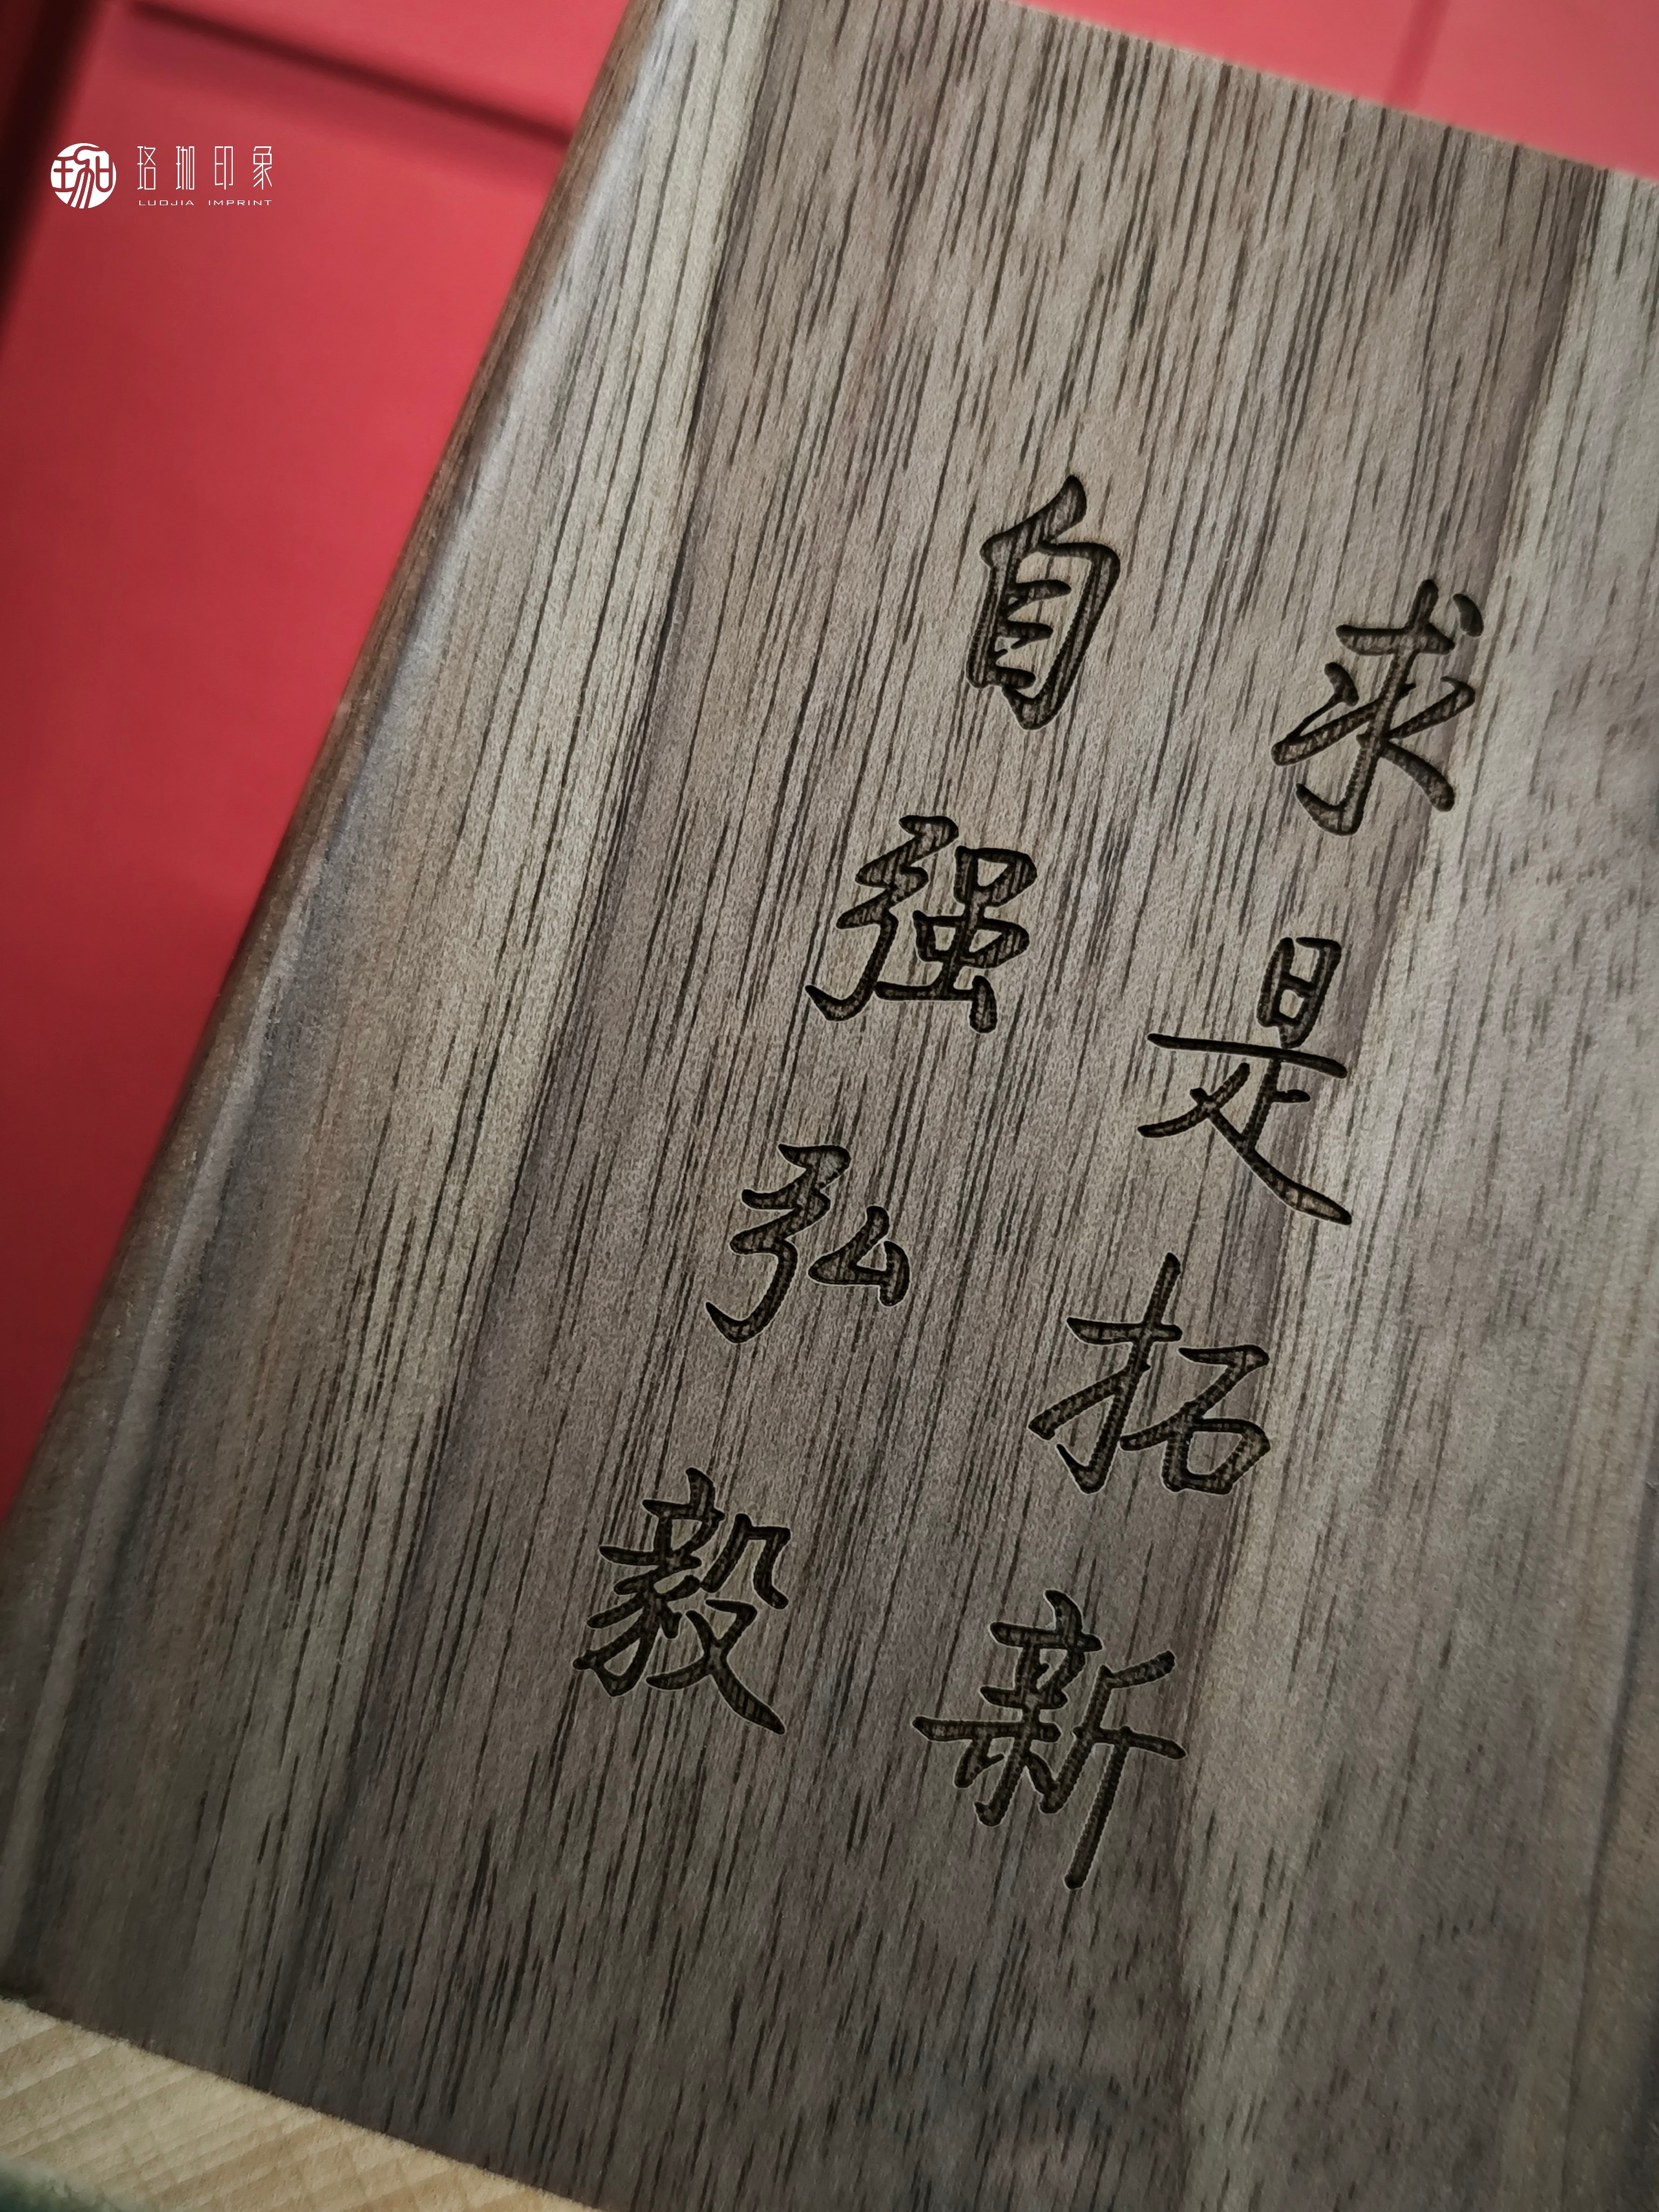 珞珈印象
LUOJIA IMPRINT
自强弘毅
求是拓新